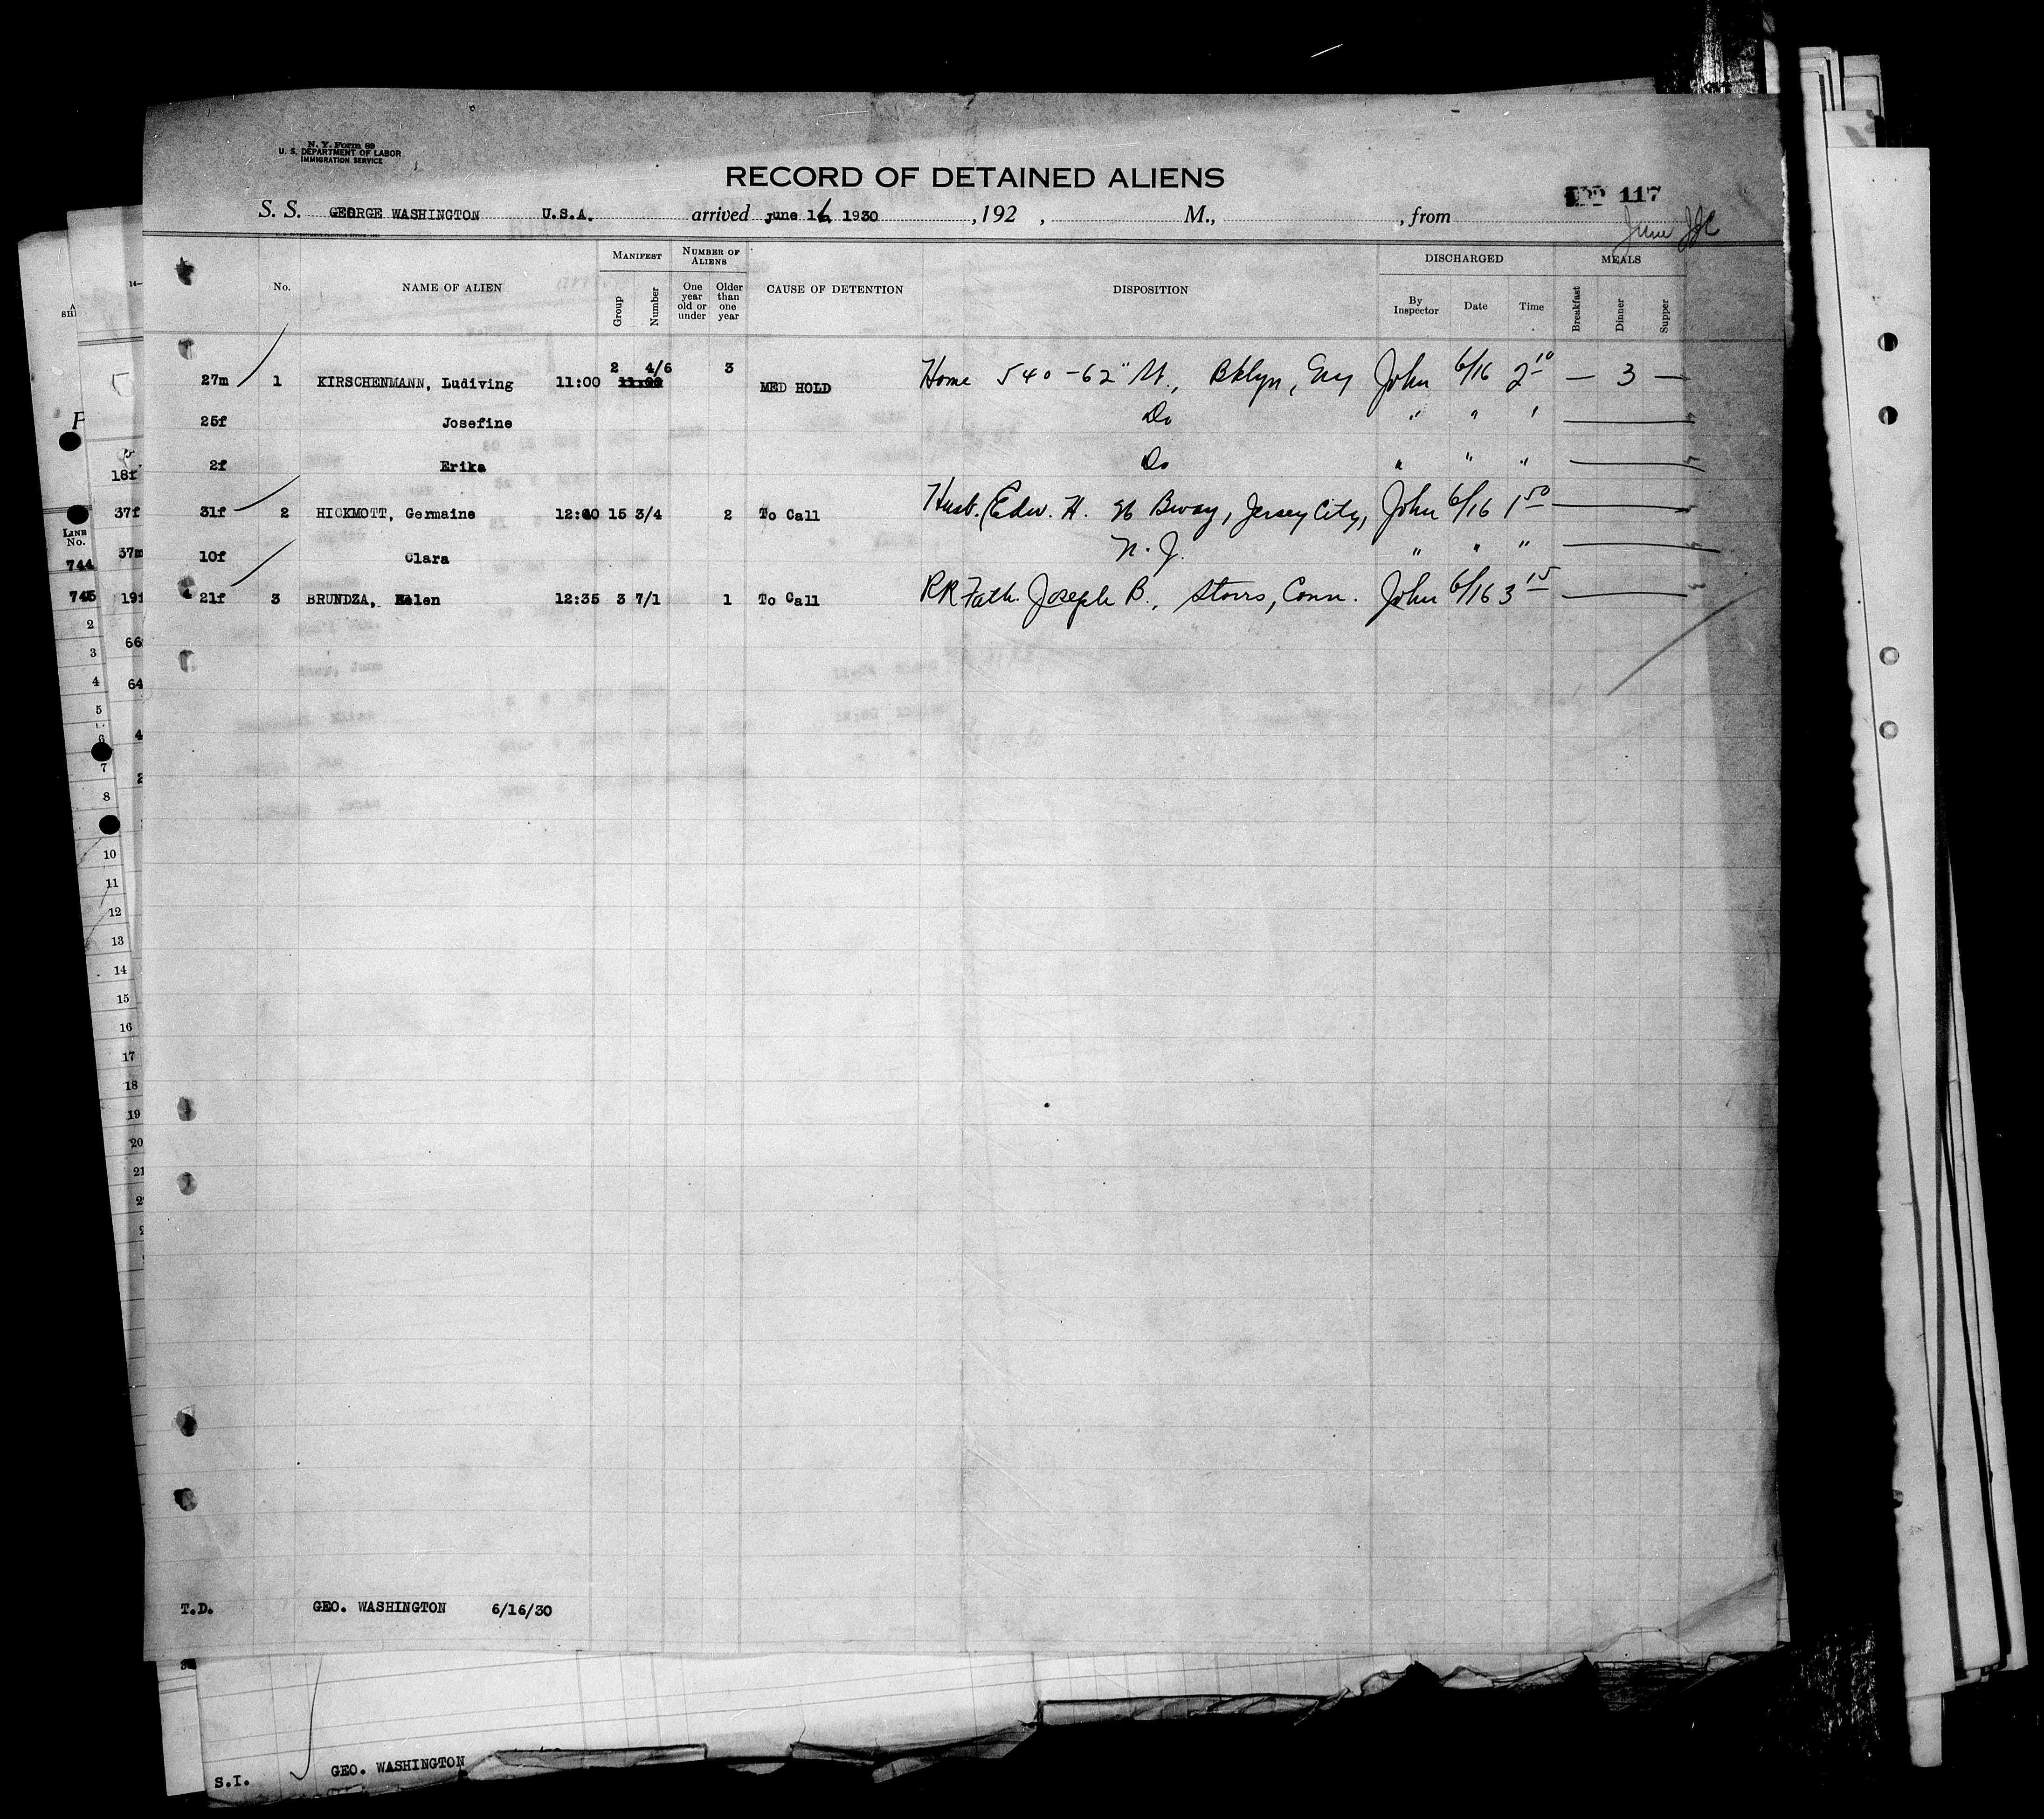 N. Y. Form 89
U. S. DEPARTMENT OF LABOR
IMMIGRATION SERVICE
RECORD OF DETAINED ALIENS
117
S. S. GEORGE WASHINGTON U.S.A. arrived June 16, 1930 , 192 , M., , from
June
No. NAME OF ALIEN MANIFEST Group Number NUMBER OF ALIENS One year old or under Older than one year CAUSE OF DETENTION DISPOSITION DISCHARGED By Inspector Date Time MEALS Breakfast Dinner Supper
27m 1 KIRSCHENMANN, Ludiving 11:00 2 4/6 3 MED HOLD Home 540-62" St., Bklyn, John 6/16 2 10 — 3 —
25f Josefine Do " " "
2f Erika Do " " "
31f 2 HICKMOTT, Germaine 12:00 15 3/4 2 To Call Husb. Edw. H. 96 Bway, Jersey City, John 6/16 1 50
10f Clara N. J. " " "
21f 3 BRUNDZA, Helen 12:35 3 7/1 1 To Call RR Fath. Joseph B., Storrs, Conn. John 6/16 3 15
T.D. GEO. WASHINGTON 6/16/30
S.I. GEO. WASHINGTON
18f
37f
LINE No.
37m
744
745
2
3
66
4
64
5
6
7
8
10
11
12
13
14
15
16
17
18
19
20
21